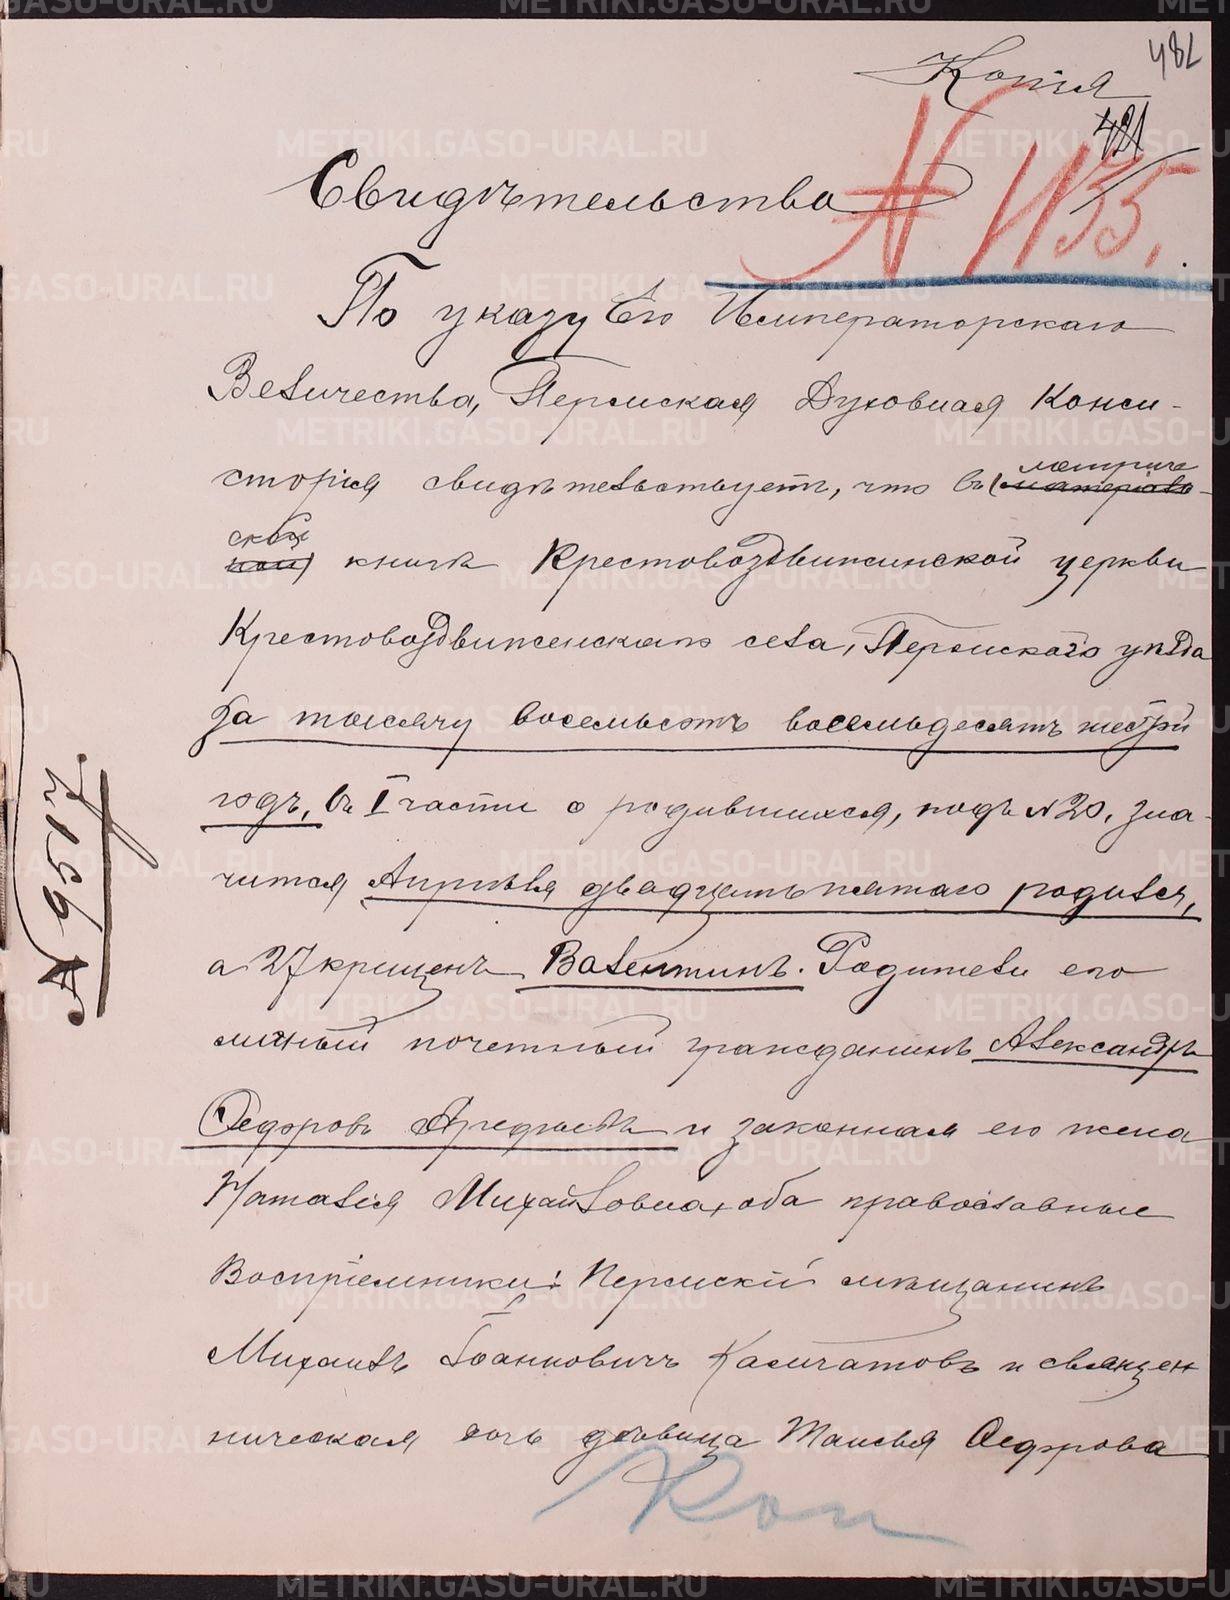 482
Копія
421
N 1135.
Свидѣтельство
По указу Его Императорскаго
Величества, Пермская Духовная Конси-
сторія свидѣтельствуетъ, что въ метриче
ской книгѣ Крестовоздвиженской церкви
Крестовоздвиженскаго села, Пермскаго уѣзда
за тысячу восемьсотъ восемьдесятъ шестой
годъ, въ I части о родившихся, подъ №20, зна-
чится Апрѣля двадцать пятаго родился,
а 27 крещенъ Валентинъ. Родители его
личный почетный гражданинъ Александръ
Ѳедоровъ и законная его жена
Наталія Михайловна, оба православные
Воспріемники: Пермскій мѣщанинъ
Михаилъ Іоанновичъ Камчатовъ и священ
ническая дочь дѣвица Таисья Ѳедорова
Коп
N 9517.
METRIKI.GASO-URAL.RU